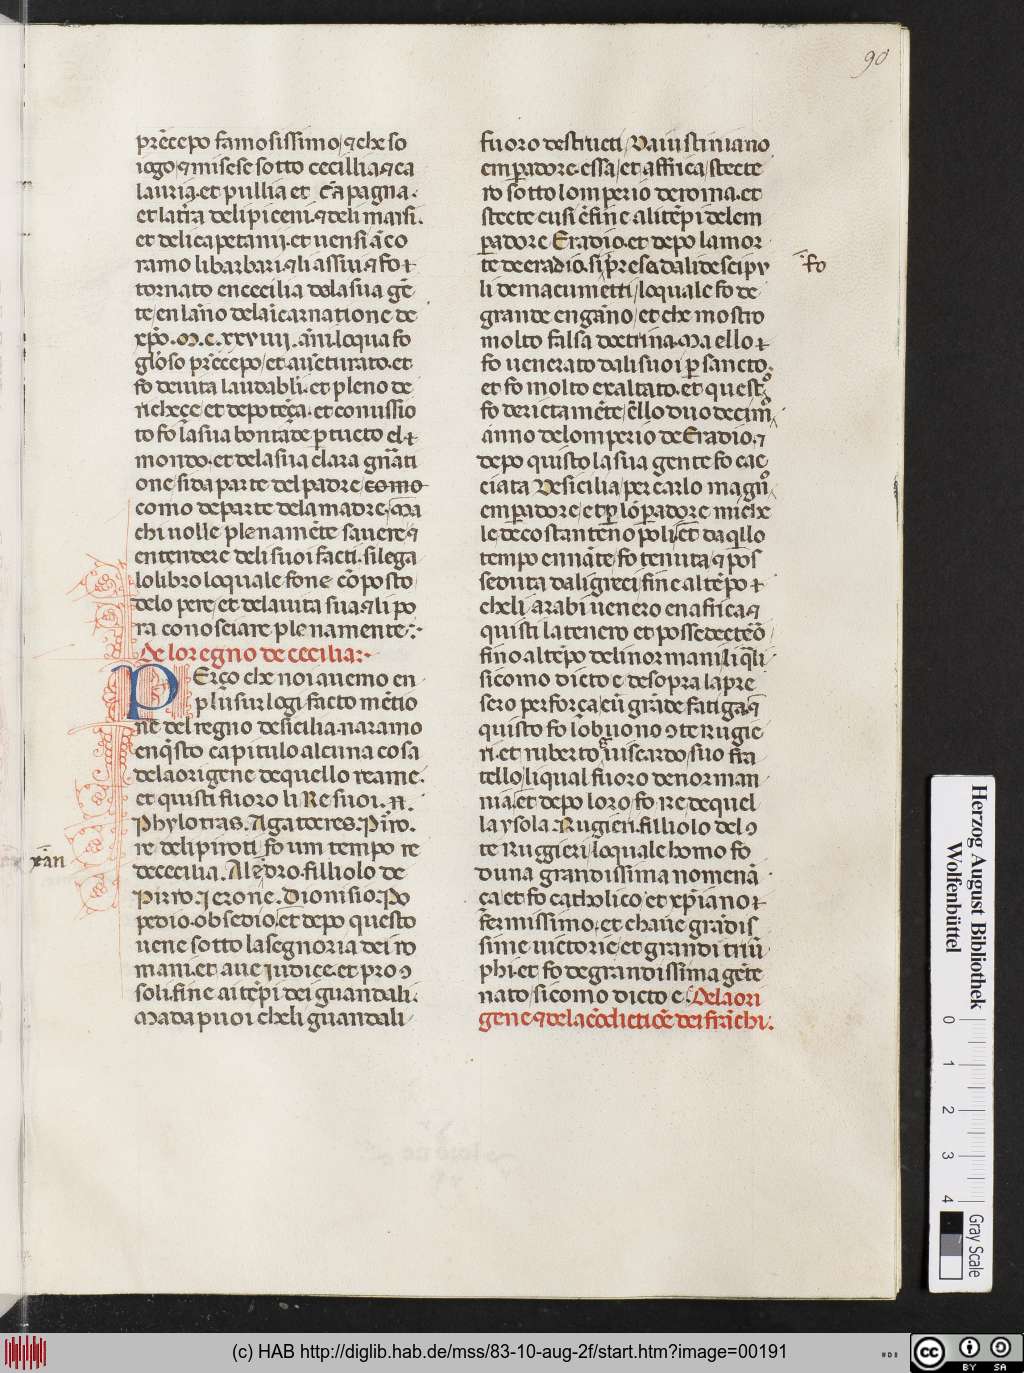 90
prēcepo famosissimo ⁊ che so
iogo ⁊ misese sotto cecillia ⁊ ca
lauria. et pullia et cāpagna.
et latr̄a deli piceni. ⁊ deli marsi.
et deli capetanij. et uensi ā co
ramo li barbari ⁊ li assiu ⁊ fo ⁊
tornato en cecilia dela sua gē
te, en lāno dela īcarnatione de
xp̄o. M.C.XXVIIII. āni. loqua fo
gl̄oso prēcepo, et auēturato. et
fo de uita laudabl̄i. et pleno de
richeçe, et de potēça. et conussio
to fo la sua bontade p tucto el ⁊
mondo. et dela sua clara gn̄ati
one, si da parte del padre como
como de parte dela madre. Ma
chi uolle plenamēte sauere ⁊
entendere deli suoi facti. si lega
lo libro loquale fone cōposto
delo pere, et dela uita sua ⁊ li po
ra conosciare plenamente:
De lo regno de cecilia:
PErço che noi auemo en
plusur logi facto mētio
ne del regno de sicilia. naramo
en q̄sto capitulo alcuna cosa
dela origene de quello reame.
et quisti fuoro li Re suoi. n.
Phylotras. Agatocres. Pirro.
re deli piroti, fo um tempo re
de cecilia. Alex̄dro. filliolo de
xān
Pirro. Jerone. Dionisio. Po
pedio. obsedio. et depo questo
uene sotto la segnoria dei ro
mani. et aue iudice. et proꝯ
soli. fine ai tēpi dei guandali.
Ma da puoi che li guandali
fuoro destructi, Da iustiniano
emp̄adore. essa, et affrica, stecte
ro sotto lomperio de roma. et
stecte cusi ēfine ali tēpi del em
p̄adore Eradio. et depo la mor
te de eradio. si p̄resa dali descipv
fo
li de macumetti, loquale fo de
grande engāno, et che mostro
molto falsa doctrina. Ma ello ⁊
fo uenerato dali suoi p sancto.
et fo molto exaltato. et quest⁹
fo derictamēte, ēllo duodecim̄
ānno delomperio de Eradio. ⁊
depo quisto la sua gente fo cac
ciata De sicilia, per carlo magn⁹
emp̄adore, et p lōp̄adore miche
le de costantenopoli, et da q̄llo
tempo ennāte, fo tenuta ⁊ pos
seduta dali greci, fine al tēpo ⁊
che li arabi uenero en africa ⁊
quisti la tenero et possedectēo
fino al tēpo deli normani, li q̄li
sicomo dicto e desopra la pre
sero per força, cū grāde fatiga. ⁊
quisto fo lo buono ꝯte rugie
ri. et ruberto guiscardo, suo fra
tello, li qual fuoro de norman
nia. et depo loro, fo re de quel
la ysola. Rugieri. filliolo del ꝯ
te Ruggieri, loquale homo fo
duna grandissima nomenā
ça. et fo catholico, et xp̄iano ⁊
fermissimo. et chaue grādis
sime uictorie, et grandi triū
phi. et fo de grandissima gēte
nato, si como dicto e. Dela ori
gene ⁊ dela cōdictiōe dei frāchi.
Herzog August Bibliothek
Wolfenbüttel
0 1 2 3 4
Gray Scale
(c) HAB http://diglib.hab.de/mss/83-10-aug-2f/start.htm?image=00191
cc BY SA